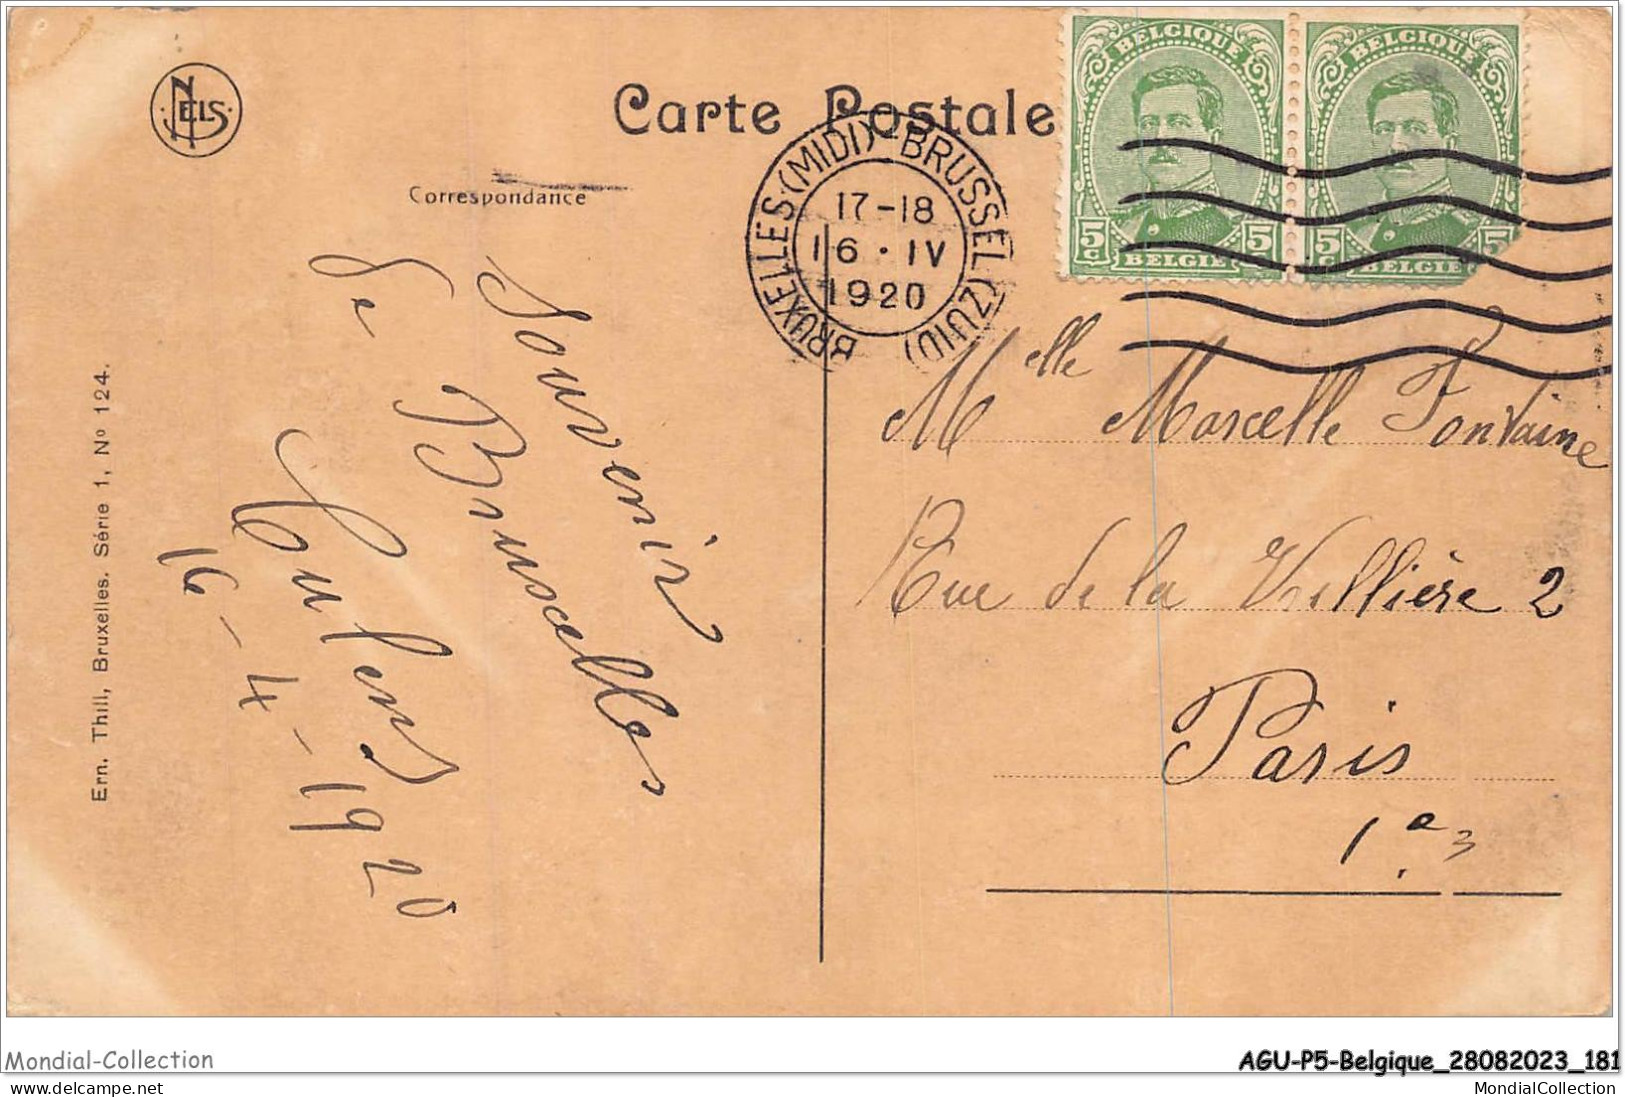 NELS
Carte Postale
Correspondance
BRUXELLES (MIDI) - BRUSSEL (ZUID)
17-18
16 · IV
1920
BELGIQUE
5 c 5 c
BELGIE
BELGIQUE
5 c 5
BELGIE
Souvenir
de Bruxelles
16-4-1920
Melle Marcelle Fontaine
Rue de la Vrillière 2
Paris
1a3
Ern. Thill, Bruxelles. Série 1, No 124.
Mondial-Collection
AGU-P5-Belgique_28082023_181
www.delcampe.net
MondialCollection